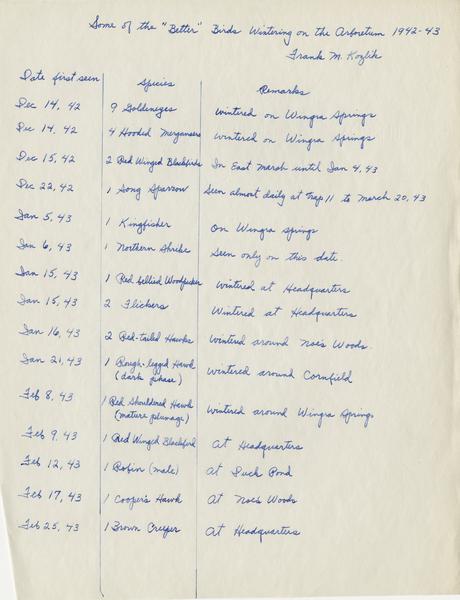 Some of the "Better" Birds Wintering on the Arboretum 1942-43
Frank M. Kozlik
Date first seen Species Remarks
Dec 14, 42 9 Goldeneyes wintered on Wingra Springs
Dec 14, 42 4 Hooded Mergansers wintered on Wingra Springs
Dec 15, 42 2 Red Winged Blackbirds In East Marsh until Jan 4, 43
Dec 22, 42 1 Song Sparrow Seen almost daily at Trap 11 to March 20, 43
Jan 5, 43 1 Kingfisher On Wingra Springs
Jan 6, 43 1 Northern Shrike Seen only on this date.
Jan 15, 43 1 Red bellied Woodpecker Wintered at Headquarters
Jan 15, 43 2 Flickers Wintered at Headquarters
Jan 16, 43 2 Red-tailed Hawks Wintered around Noe's Woods.
Jan 21, 43 1 Rough-legged Hawk
(dark phase) wintered around Cornfield
Feb 8, 43 1 Red Shouldered Hawk
(mature plumage) wintered around Wingra Springs
Feb 9, 43 1 Red Winged Blackbird At Headquarters
Feb 12, 43 1 Robin (male) At Duck Pond
Feb 17, 43 1 Cooper's Hawk At Noe's Woods
Feb 25, 43 1 Brown Creeper At Headquarters